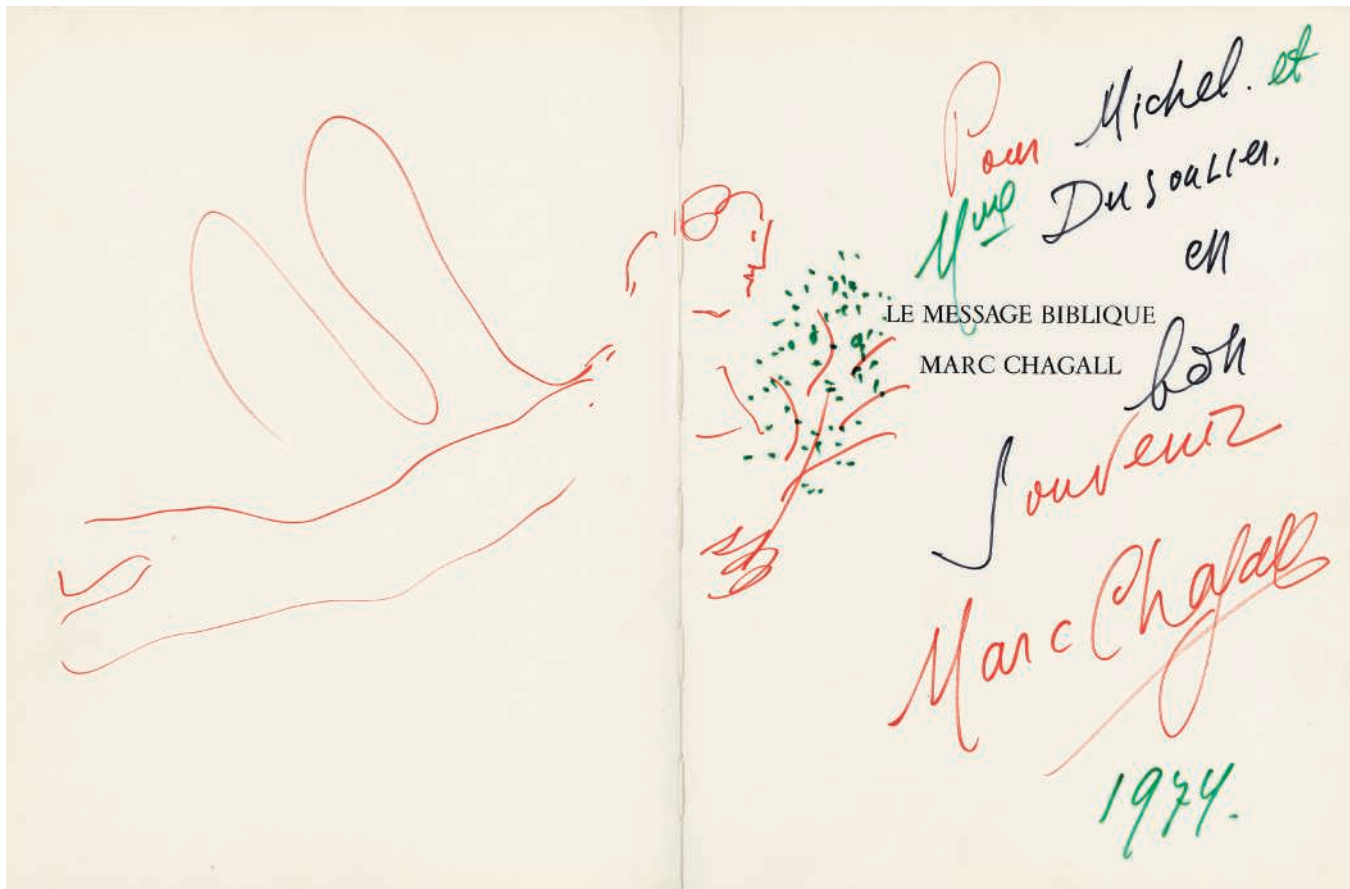 Pour Michel. et
Mme Dusoulier.
en
LE MESSAGE BIBLIQUE
MARC CHAGALL
bon
Souvenir
Marc Chagall
1974.